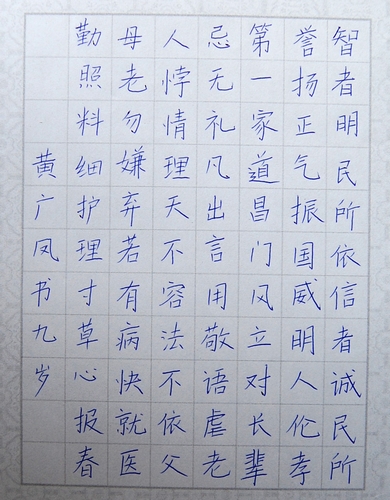 智者明民所依信者诚民所
誉扬正气振国威明人伦孝
第一家道昌门风立对长辈
忌无礼凡出言用敬语虐老
人悖情理天不容法不依父
母老勿嫌弃若有病快就医
勤照料细护理寸草心报春
黄广凤书九岁